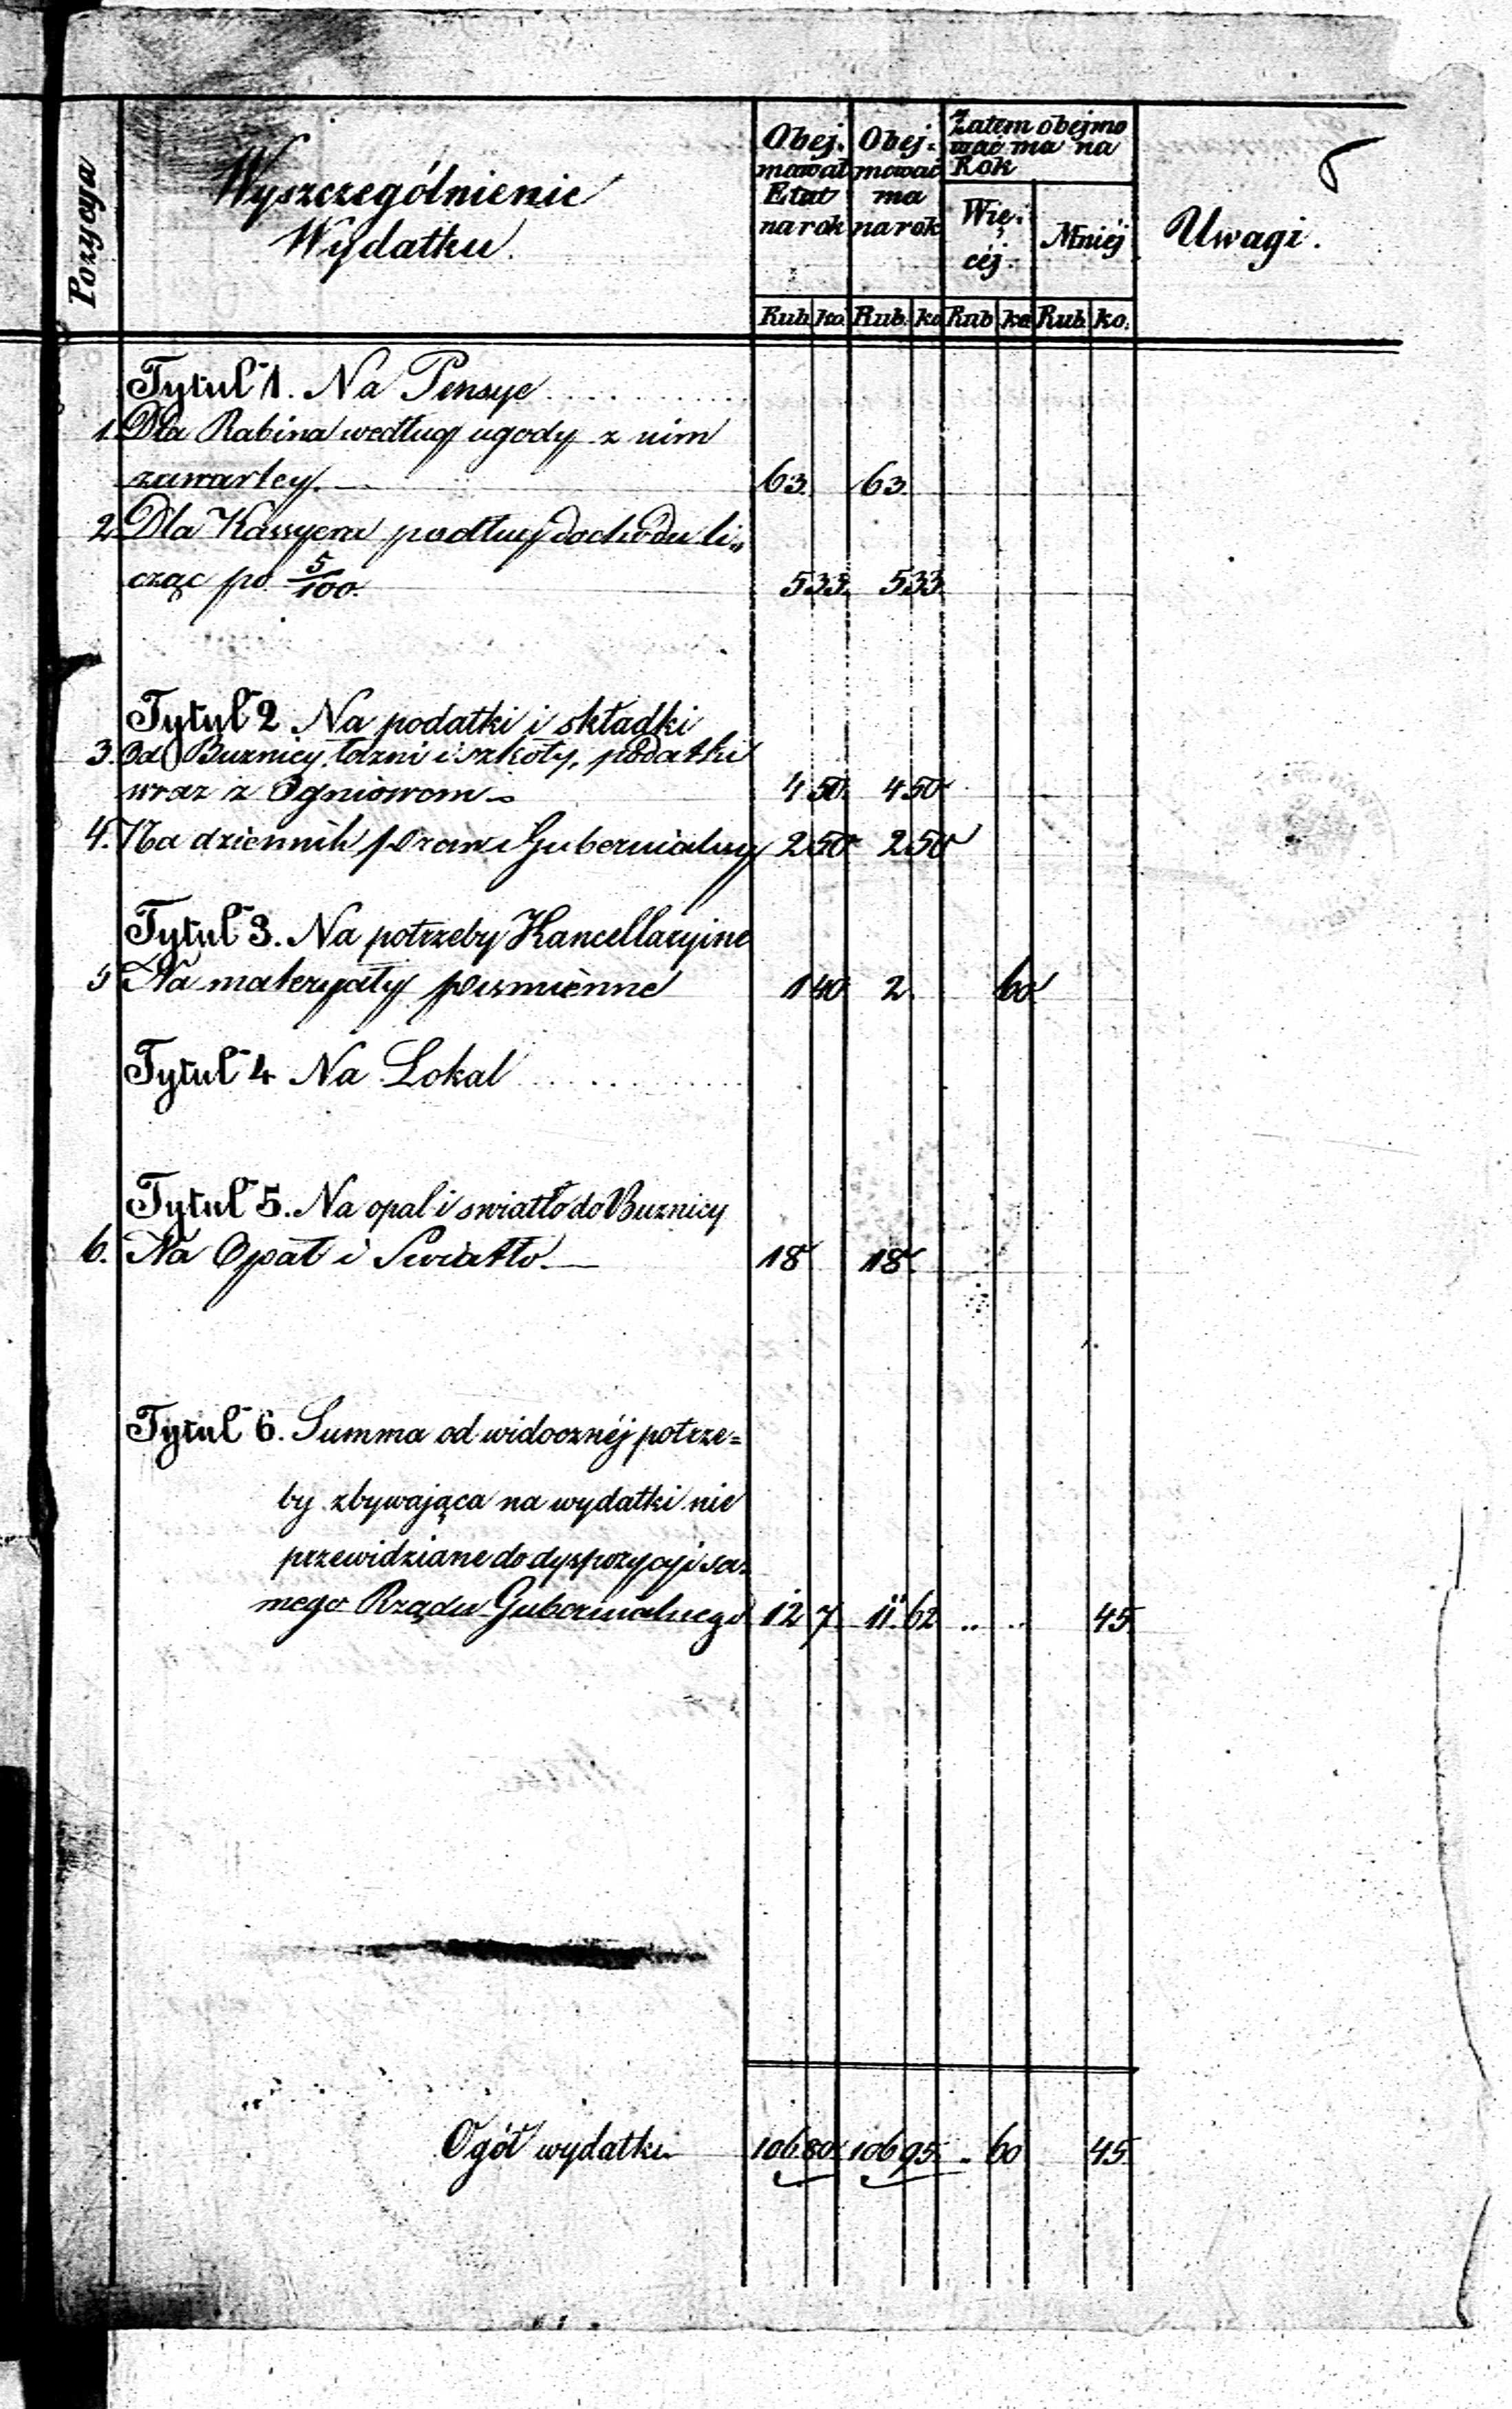 Pozycya
Wyszczególnienie
Wydatku.
Obej-
mował
Etat
na rok
Obej-
mować
ma
na rok
Zatem obejmo
wać ma na
Rok
Wię-
céj.
Mniéj
Uwagi.
Rub. ko. Rub. ko Rub ko Rub. ko.
Tytuł 1. Na Pensye
1. Dla Rabina według ugody z nim
zawartey. 63. 63.
2. Dla Kassyera podług dochodu li„
cząc po 5/100. 5 33. 5 33.
Tytuł 2 Na podatki i składki
3. Od Buznicy, łazni i szkoły, podatku
wraz z Ogniowem 4 50. 4 50
4. Na dziennik praw i Gubernialny 2 50 2 50
Tytuł 3. Na potrzeby Kancellaryjne
5 Na materyały pismienne 1 40 2. 60
Tytuł 4 Na Lokal
Tytuł 5. Na opał i swiatło do Buznicy
6. Na Opał i Swiatło. 18 18.
Tytuł 6. Summa od widocznéj potrze=
by zbywająca na wydatki nie
przewidziane do dyspozycyi sa=
mego Rządu Gubernialnego 12 7. 11. 62 .. .. 45.
Ogół wydatku 106 80. 106 95. .. 60 45.